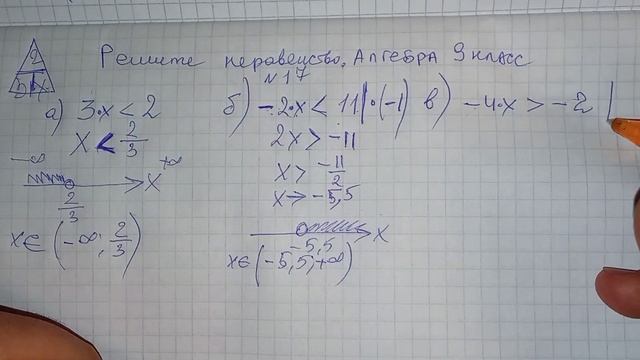 Решите неравенство, Алгебра 9 класс
№17
а) 3·x < 2
x < 2/3
-∞ +∞
x
2/3
x∈ (-∞; 2/3)
б) -2x < 11 |·(-1)
2x > -11
x > -11/2
x > -5,5
x
-5,5
x∈ (-5,5; +∞)
в) -4·x > -2 |